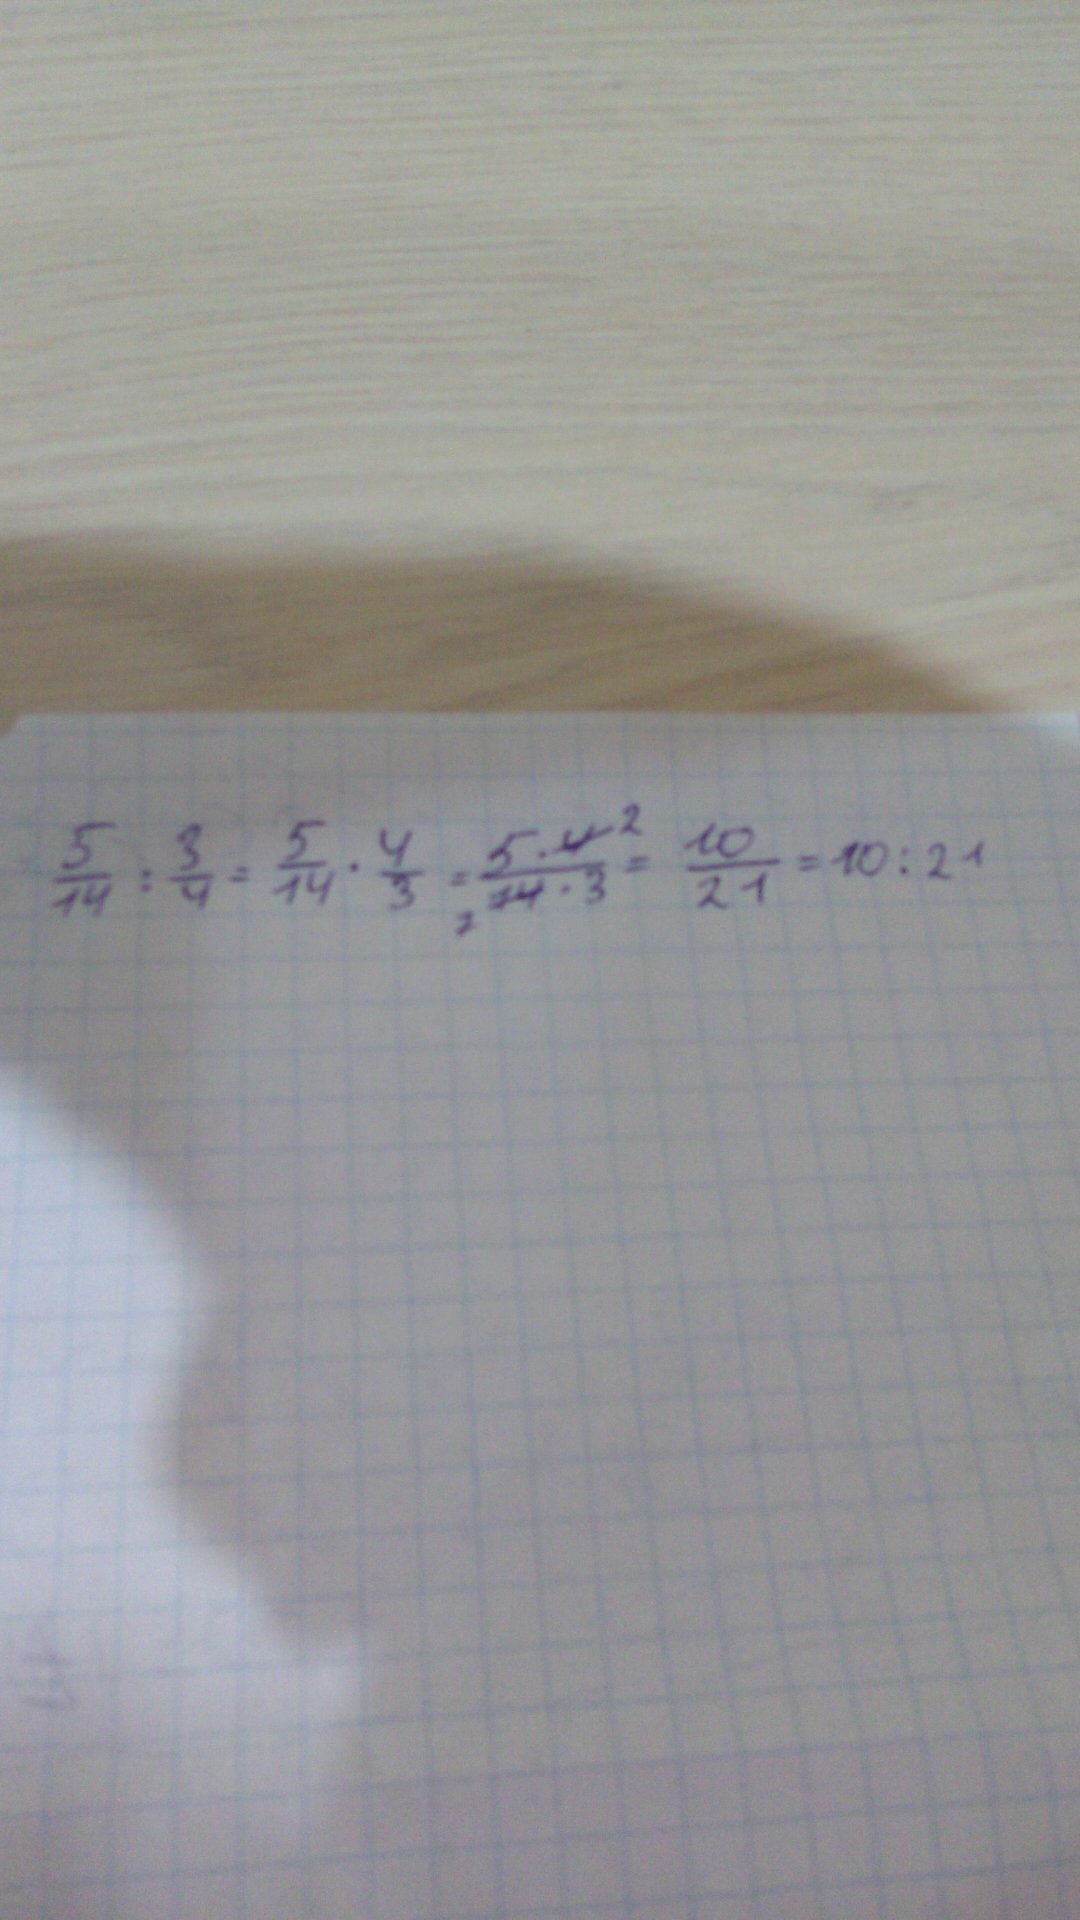 5/14 : 3/4 = 5/14 · 4/3 = 5·4 2/7 14·3 = 10/21 = 10:21